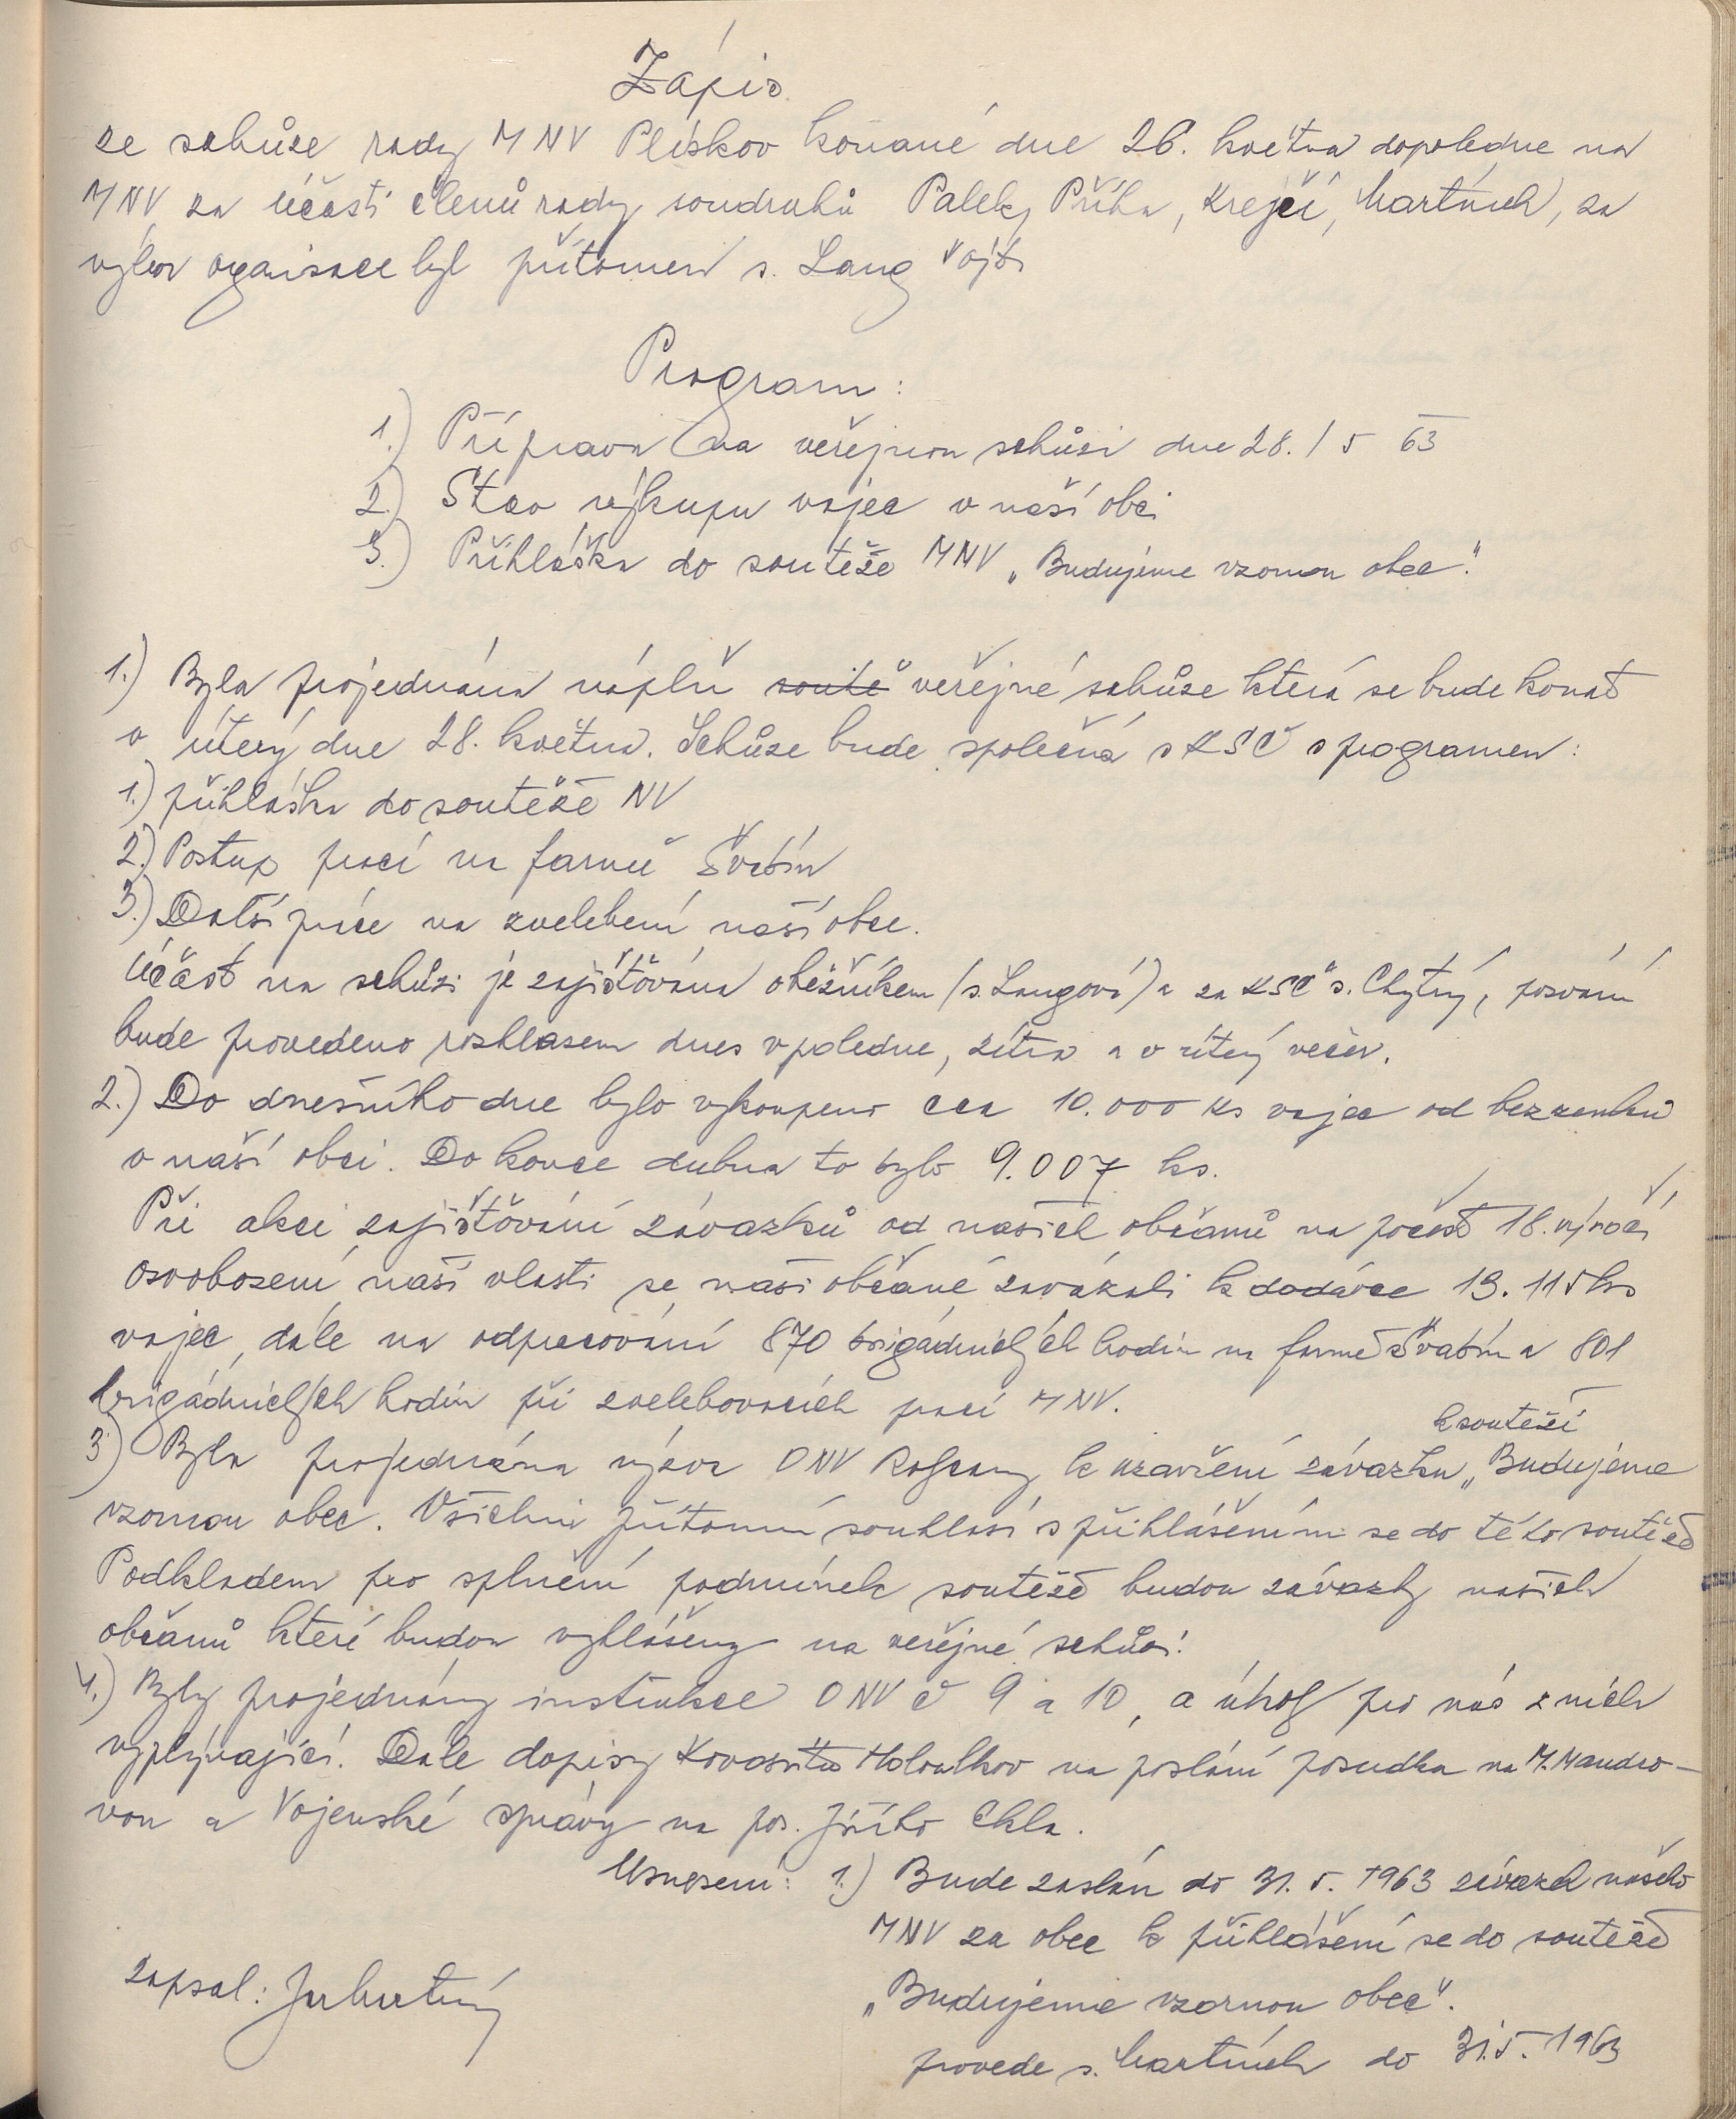 Zápis
ze schůze rady MNV Plískov konané dne 26. května dopoledne na
MNV za účasti členů rady soudruhů Palek, Příha, Krejčí, Martínek, za
výbor organisace byl přítomen s. Lang Vojt.
Program:
1.) Příprava na veřejnou schůzi dne 28. / 5 63
2.) Stav výkupu vajec v naší obci
3.) Přihláška do soutěže MNV „Budujeme vzornou obec".
1.) Byla projednána náplň soutě veřejné schůze která se bude konat
v úterý dne 28. května. Schůze bude společná s KSČ s programem:
1.) přihláška do soutěže NV
2.) Postup prací na farmě Švabín
3.) Další práce na zvelebení naší obce.
Účast na schůzi je zajišťována oběžníkem (s. Langová) a za KSČ s. Chytrý, pozvání
bude provedeno rozhlasem dnes v poledne, zítra a v úterý večer.
2.) Do dnešního dne bylo vykoupeno cca 10.000 ks vajec od bezzemků
v naší obci. Do konce dubna to bylo 9.007 ks.
Při akci zajišťování závazků od našich občanů na počest 18. výročí
osvobození naší vlasti se naši občané zavázali k dodávce 13.115 ks
vajec, dále na odpracování 870 brigádnických hodin na farmě Švabín a 801
brigádnických hodin při zvelebovacích prací MNV.
k soutěži
3) Byla projednána výzva ONV Rokycany k uzavření závazku „Budujeme
vzornou obec. Všichni přítomní souhlasí s přihlášením se do této soutěže
Podkladem pro splnění podmínek soutěže budou závazky našich
občanů které budou vyhlášeny na veřejné schůzi.
4.) Byly projednány instrukce ONV č 9 a 10, a úkoly pro nás z nich
vyplývající. Dále dopisy Kovosvitu Holoubkov na poslání posudku na M. Mandso-
vou a Vojenské správy na pos. Jiřího Chla.
Usnesení: 1.) Bude zaslán do 31. 5. 1963 závazek našeho
MNV za obec k přihlášení se do soutěže
„Budujeme vzornou obec".
provede s. Martínek do 31. 5. 1963
zapsal: